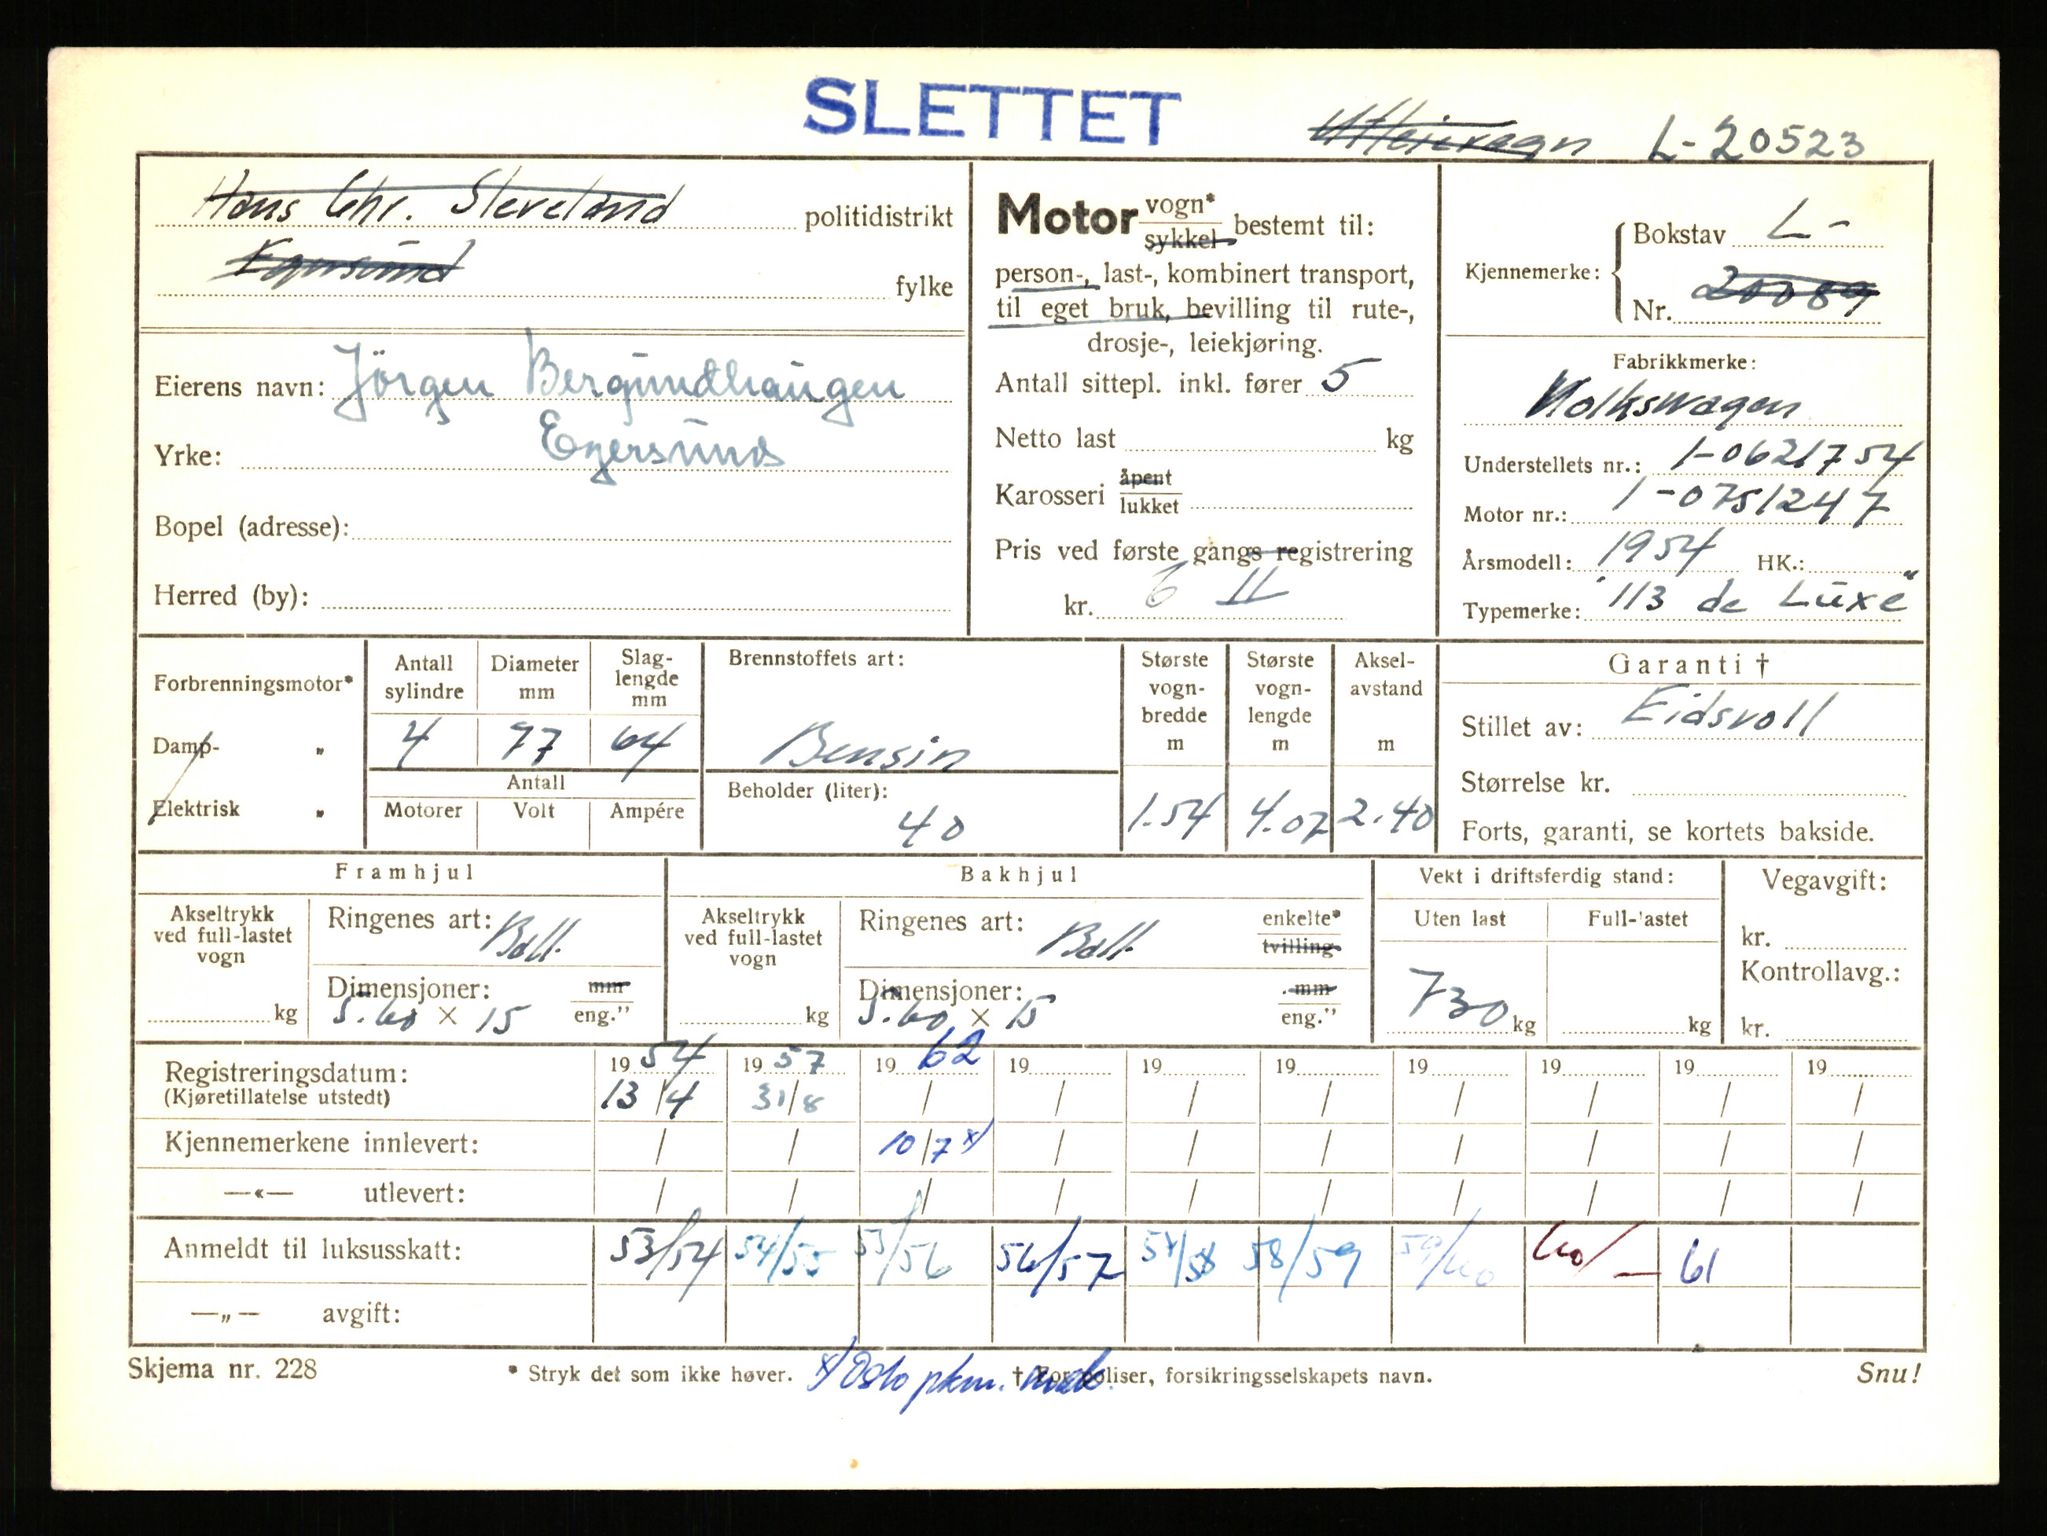 SLETTET
Utleievogn L-20523
Hans Chr. Sleveland politidistrikt
Egersund fylke
Eierens navn: Jörgen Bergundhaugen
Yrke: Egersund
Bopel (adresse):
Herred (by):
Motor vogn* sykkel bestemt til:
person-, last-, kombinert transport,
til eget bruk, bevilling til rute-,
drosje-, leiekjøring.
Antall sittepl. inkl. fører 5
Netto last kg
Karosseri åpent lukket
Pris ved første gangs registrering
kr. 6 II
Kjennemerke: Bokstav L-
Nr. 20089
Fabrikkmerke:
Volkswagen
Understellets nr.: 1-0621754
Motor nr.: 1-0751247
Årsmodell: 1954 HK.:
Typemerke: "113 de Luxe"
Forbrenningsmotor*
Damp- "
Elektrisk "
Antall sylindre Diameter mm Slaglengde mm
4 77 64
Antall
Motorer Volt Ampére
Brennstoffets art:
Bensin
Beholder (liter):
40
Største vognbredde m Største vognlengde m Akselavstand m
1.54 4.07 2.40
Garanti †
Stillet av: Eidsvoll
Størrelse kr.
Forts, garanti, se kortets bakside.
Framhjul
Akseltrykk ved full-lastet vogn
kg
Ringenes art: Ball.
Dimensjoner: mm
5.60 × 15 eng."
Bakhjul
Akseltrykk ved full-lastet vogn
kg
Ringenes art: Ball. enkelte* tvilling.
Dimensjoner: mm
5.60 × 15 eng."
Vekt i driftsferdig stand:
Uten last Full-lastet
730 kg kg
Vegavgift:
kr.
Kontrollavg.:
kr.
Registreringsdatum: 19 54 19 57 19 62 19 19 19 19 19 19 19
(Kjøretillatelse utstedt) 13/4 31/8 / / / / / / / /
Kjennemerkene innlevert: / / 10/7 x) / / / / / / /
—«— utlevert: / / / / / / / / / /
Anmeldt til luksusskatt: 53/54 54/55 55/56 56/57 57/58 58/59 59/60 60/— 61
—„— avgift:
Skjema nr. 228 * Stryk det som ikke høver. † For poliser, forsikringsselskapets navn. Snu!
x) Oslo pkm.